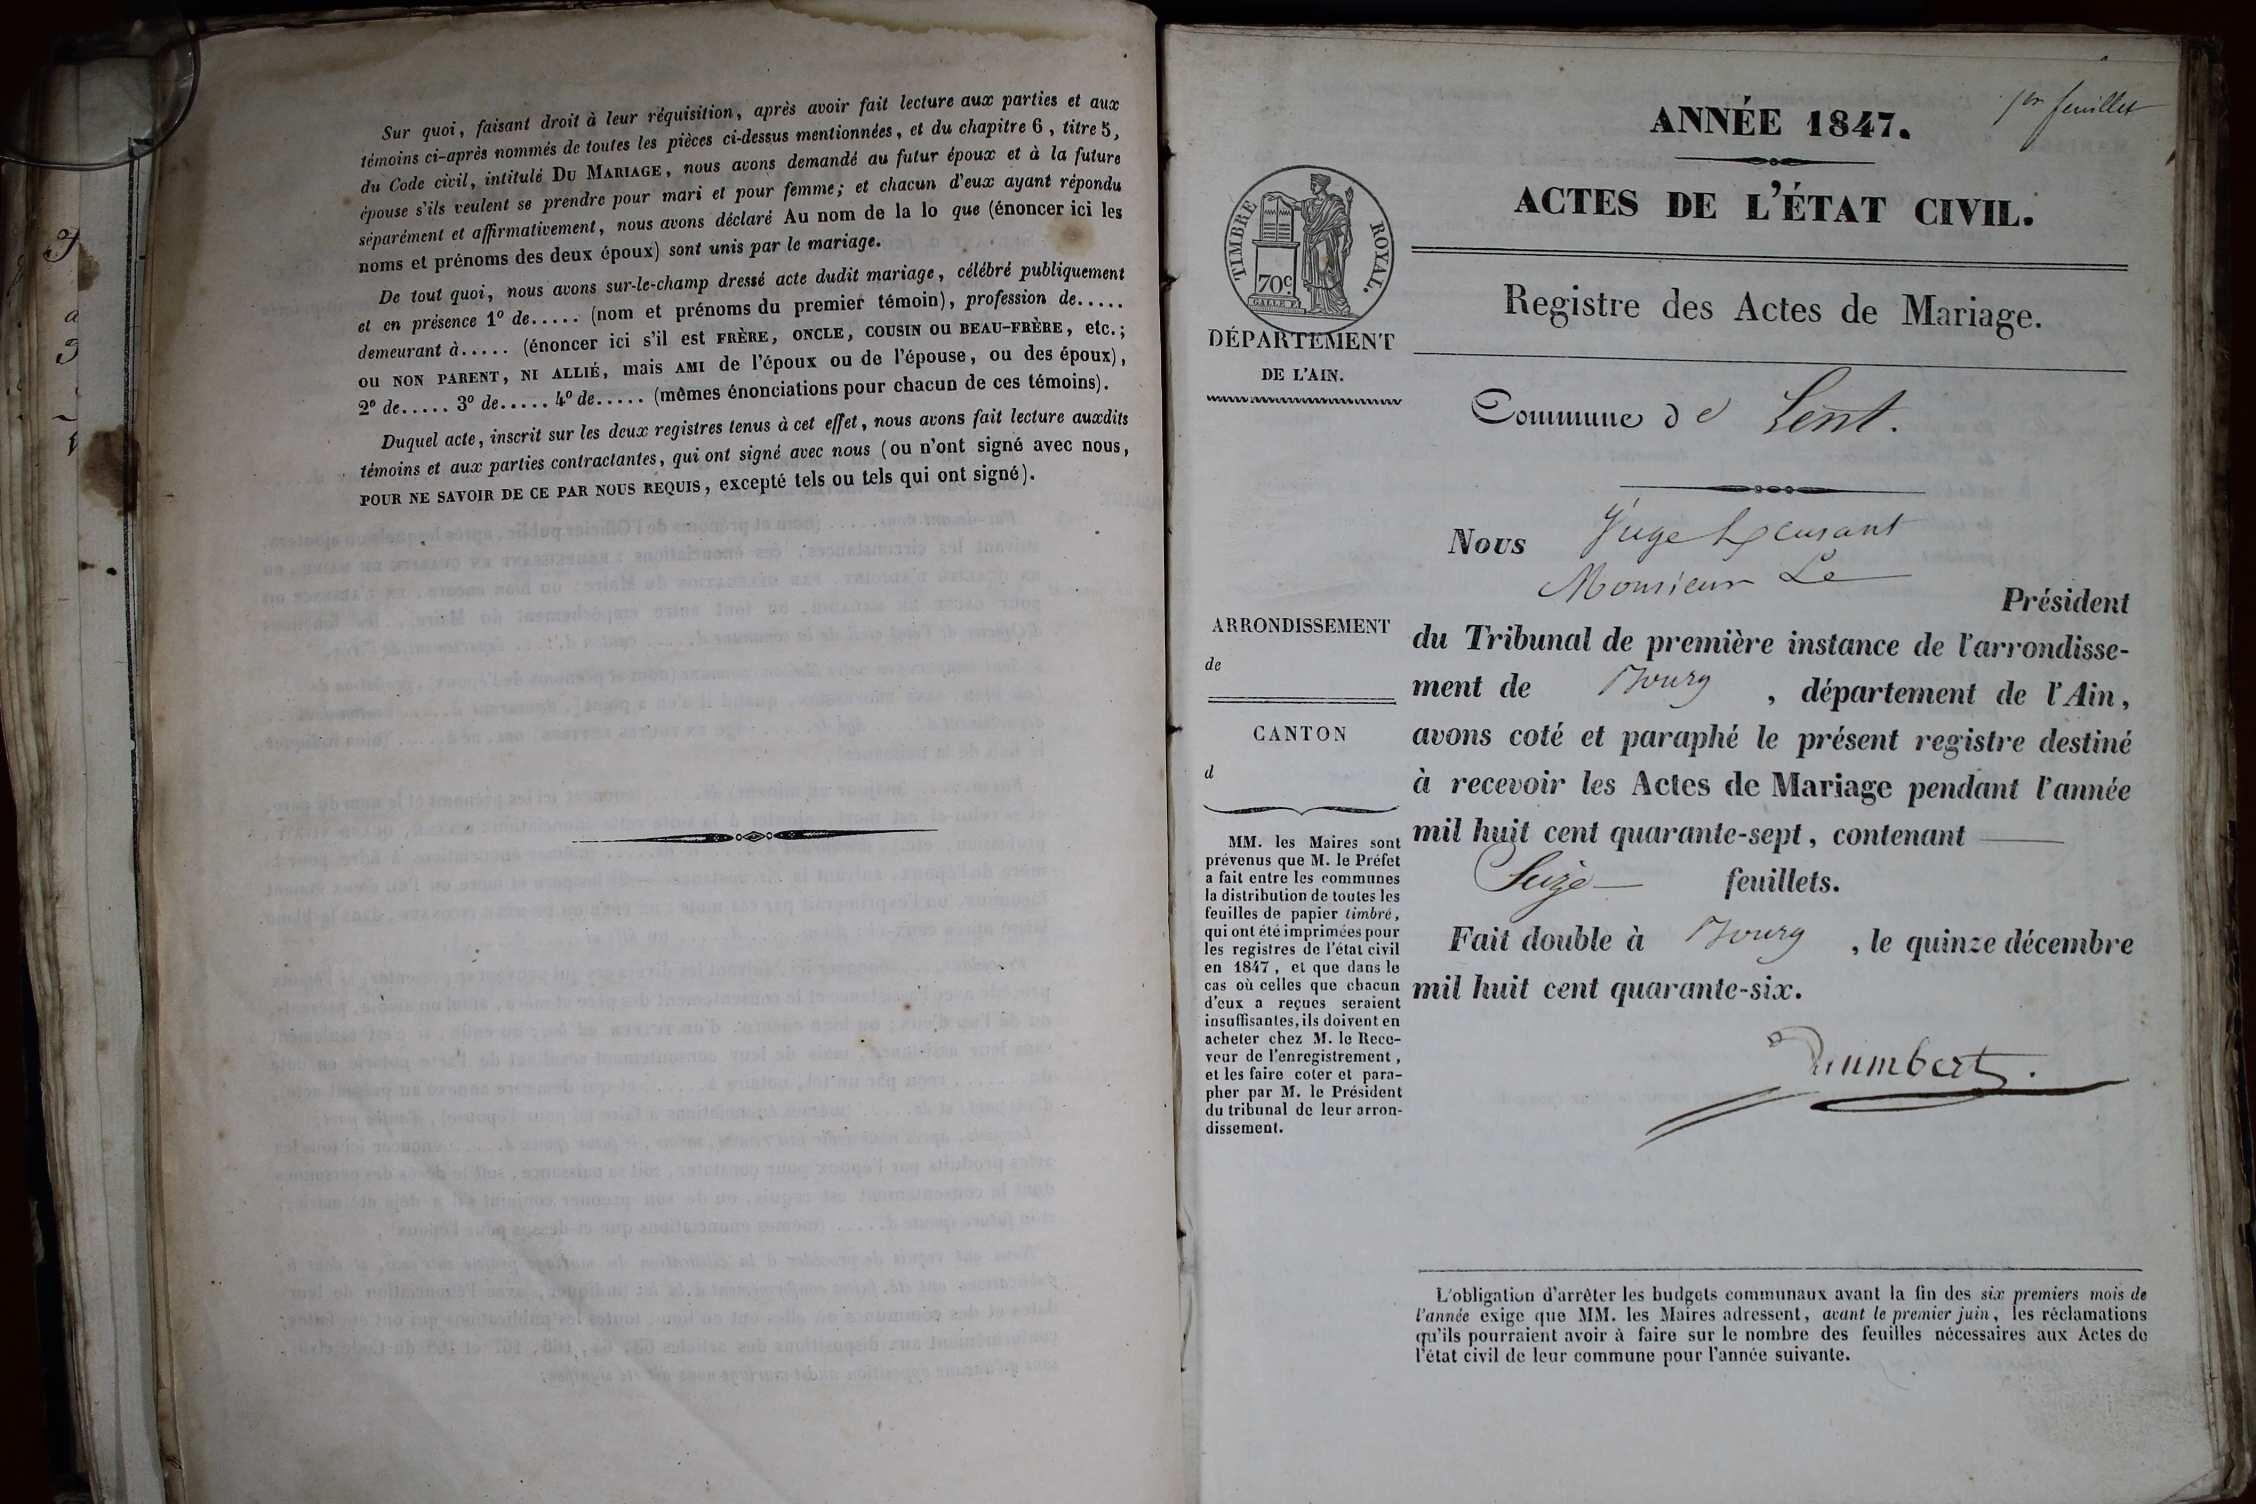 Sur quoi, faisant droit à leur réquisition, après avoir fait lecture aux parties et aux
témoins ci-après nommés de toutes les pièces ci-dessus mentionnées, et du chapitre 6, titre 5,
du Code civil, intitulé DU MARIAGE, nous avons demandé au futur époux et à la future
épouse s'ils veulent se prendre pour mari et pour femme; et chacun d'eux ayant répondu
séparément et affirmativement, nous avons déclaré Au nom de la lo que (énoncer ici les
noms et prénoms des deux époux) sont unis par le mariage.
De tout quoi, nous avons sur-le-champ dressé acte dudit mariage, célébré publiquement
et en présence 1º de..... (nom et prénoms du premier témoin), profession de.....
demeurant à..... (énoncer ici s'il est FRÈRE, ONCLE, COUSIN OU BEAU-FRÈRE, etc.;
OU NON PARENT, NI ALLIÉ, mais AMI de l'époux ou de l'épouse, ou des époux),
2º de..... 3º de..... 4º de..... (mêmes énonciations pour chacun de ces témoins).
Duquel acte, inscrit sur les deux registres tenus à cet effet, nous avons fait lecture auxdits
témoins et aux parties contractantes, qui ont signé avec nous (ou n'ont signé avec nous,
POUR NE SAVOIR DE CE PAR NOUS REQUIS, excepté tels ou tels qui ont signé).
1er feuillet
ANNÉE 1847.
ACTES DE L'ÉTAT CIVIL.
Registre des Actes de Mariage.
TIMBRE ROYAL.
70c.
GALLE F.
DÉPARTEMENT
DE L'AIN.
Commune de Lent.
Nous Juge
Monsieur Le
Président
du Tribunal de première instance de l'arrondisse-
ment de Bourg, département de l'Ain,
avons coté et paraphé le présent registre destiné
à recevoir les Actes de Mariage pendant l'année
mil huit cent quarante-sept, contenant
Seize feuillets.
Fait double à Bourg, le quinze décembre
mil huit cent quarante-six.
ARRONDISSEMENT
de
CANTON
d
MM. les Maires sont
prévenus que M. le Préfet
a fait entre les communes
la distribution de toutes les
feuilles de papier timbré,
qui ont été imprimées pour
les registres de l'état civil
en 1847, et que dans le
cas où celles que chacun
d'eux a reçues seraient
insuffisantes, ils doivent en
acheter chez M. le Rece-
veur de l'enregistrement,
et les faire coter et para-
pher par M. le Président
du tribunal de leur arron-
dissement.
L'obligation d'arrêter les budgets communaux avant la fin des six premiers mois de
l'année exige que MM. les Maires adressent, avant le premier juin, les réclamations
qu'ils pourraient avoir à faire sur le nombre des feuilles nécessaires aux Actes de
l'état civil de leur commune pour l'année suivante.